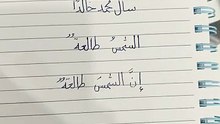 سأل محمد خالدًا
الشمسُ طالعةٌ
إنَّ الشمسَ طالعةٌ